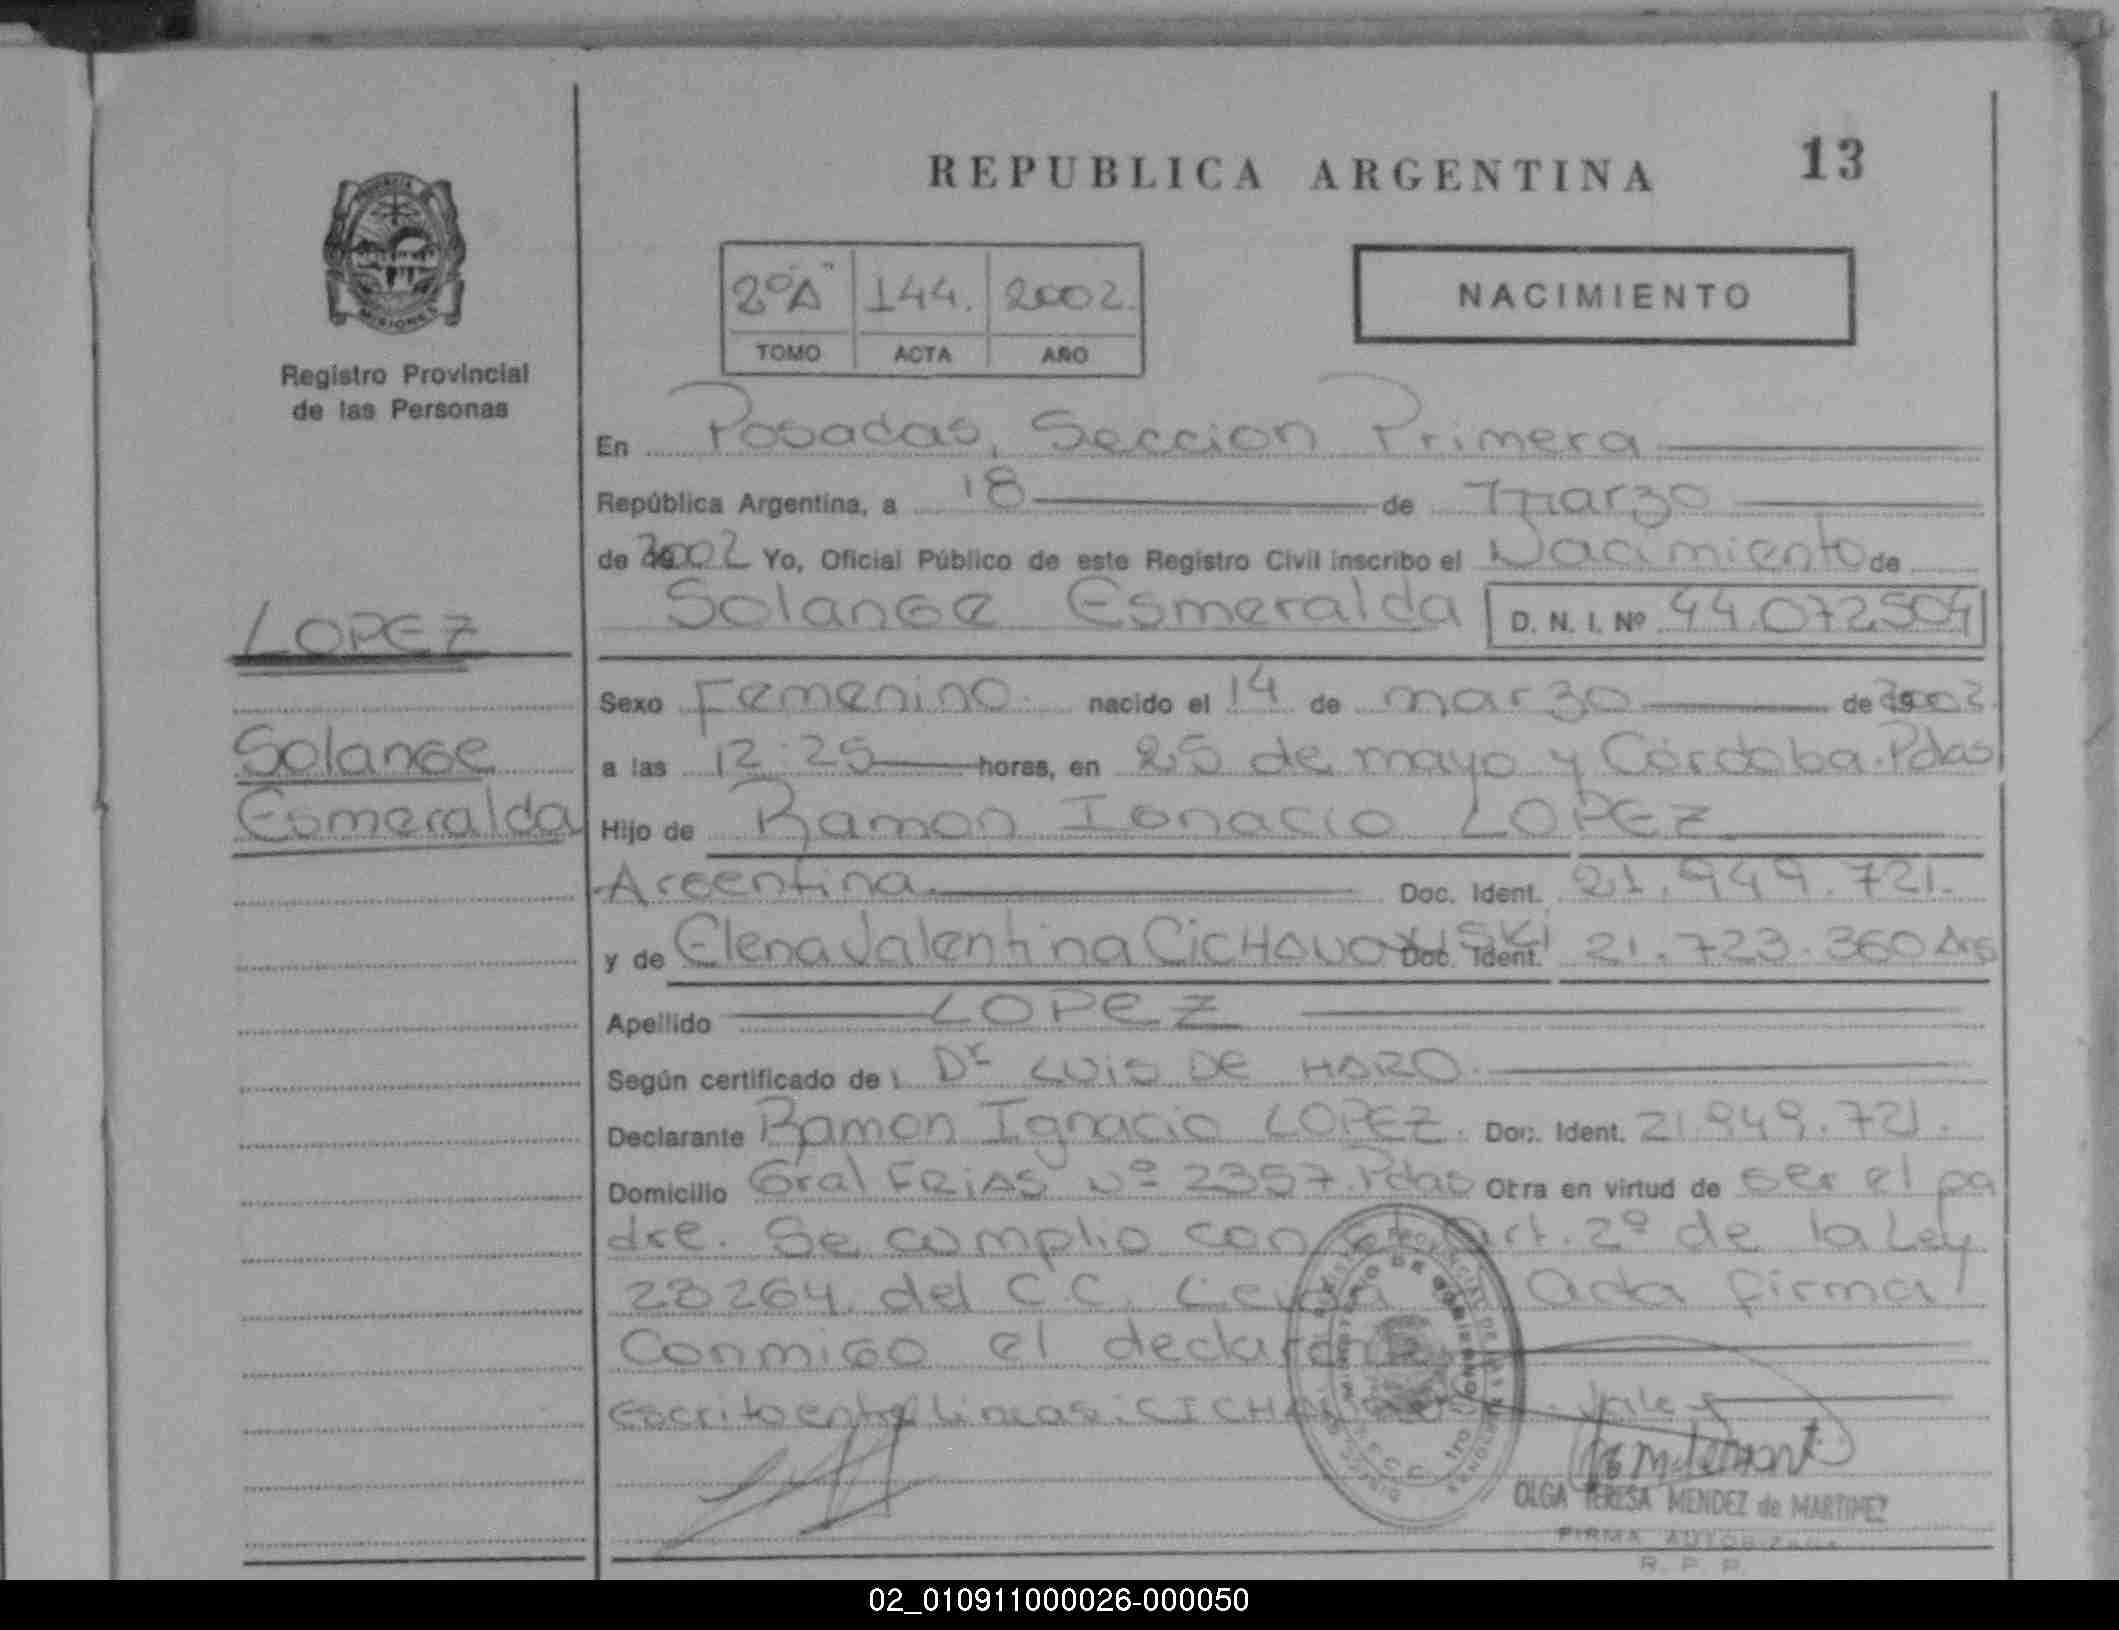 REPUBLICA ARGENTINA
13
MISIONES
Registro Provincial
de las Personas
2º "A" 144. 2002.
TOMO ACTA AÑO
NACIMIENTO
En Posadas, Seccion Primera
República Argentina, a 18 de marzo
de 2002 Yo, Oficial Público de este Registro Civil inscribo el Nacimiento de
Solange Esmeralda D. N. I. Nº 44.072504
LOPEZ
Solange
Esmeralda
Sexo Femenino. nacido el 14 de marzo de 2002
a las 12:25 horas, en 25 de mayo y Córdoba. Pdas
Hijo de Ramon Ignacio LOPEZ
Argentina. Doc. Ident. 21.949.721.
y de Elena Valentina Doc. Ident. 21.723.360 Arg
Apellido LOPEZ
Según certificado de: Dr LUIS DE HARO.
Declarante Ramon Ignacio LOPEZ. Doc. Ident. 21.949.721.
Domicilio Gral FRIAS Nº 2357. Pdas Otra en virtud de ser el pa
dre. Se cumplio con Art. 2º de la Ley
23264 del C.C. Leida Acta firma
Conmigo el
Escrito entre lineas: Vale
OLGA TERESA MENDEZ de MARTINEZ
FIRMA AUTORIZADA
R. P. P.
02_010911000026-000050